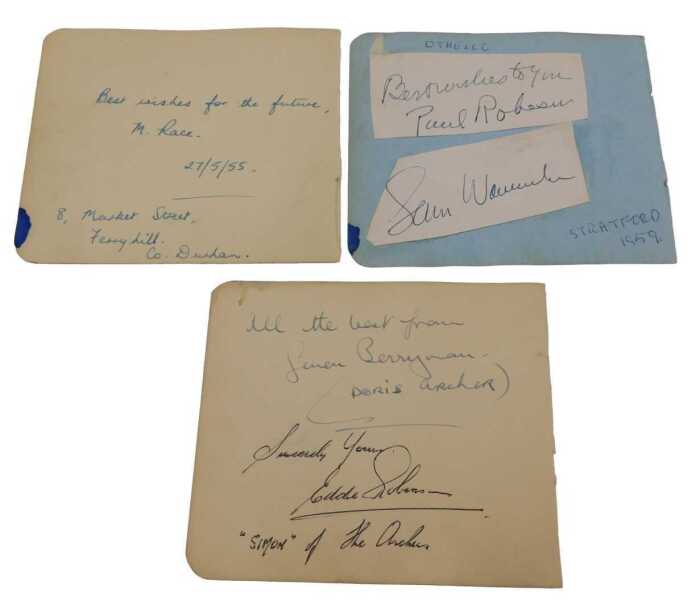 Best wishes for the future,
M. Race.
27/5/55.
8, Market Street,
Ferryhill.
Co. Durham.
OTHELLO
Best wishes to you
Paul Robeson
Sam Wanamaker
STRATFORD
1959.
All the best from
Gwen Berryman.
(DORIS ARCHER)
Sincerely Yours,
Eddie Robinson
"SIMON" of The Archers